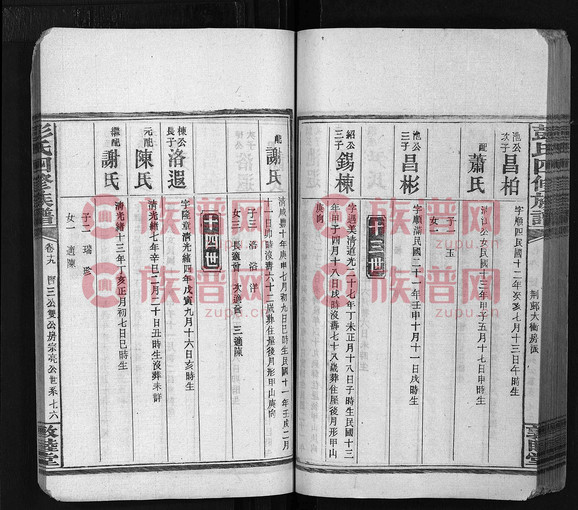 彭氏四修族譜
荆鄉大衝房派
敦睦堂
池公
次子
昌柏
字順四民國十二年癸亥七月十三日午時生
配
蕭氏
清江公女民國十三年甲子五月十七日申時生
子一 玉
女一
池公
三子
昌彬
字順滿民國二十一年壬申十月十一日戌時生
十三世
紹公
三子
錫棟
字過美清道光二十七年丁未正月十八日子時生民國十三
年甲子四月十八日戌時沒壽七十八歲葬住屋後月形甲山
庚向
配
謝氏
清咸豐十年庚申七月初九日巳時生民國十一年壬戌二月
十一日卯時沒壽六十二歲葬住屋後月形甲山庚向
子三 洛 洛 洋
女三 長適曾 次適 三適陳
十四世
棟公
長子
洛遐
字隆章清光緒四年戊寅九月十六日亥時生
元配
陳氏
清光緒七年辛巳二月二十日丑時生沒葬未詳
繼配
謝氏
清光緒十三年丁亥正月初七日巳時生
子二 瑞
女一 適陳
彭氏四修族譜
卷廿九
晉三公雙公房宗亮公世系
七六
敦睦堂
族譜网